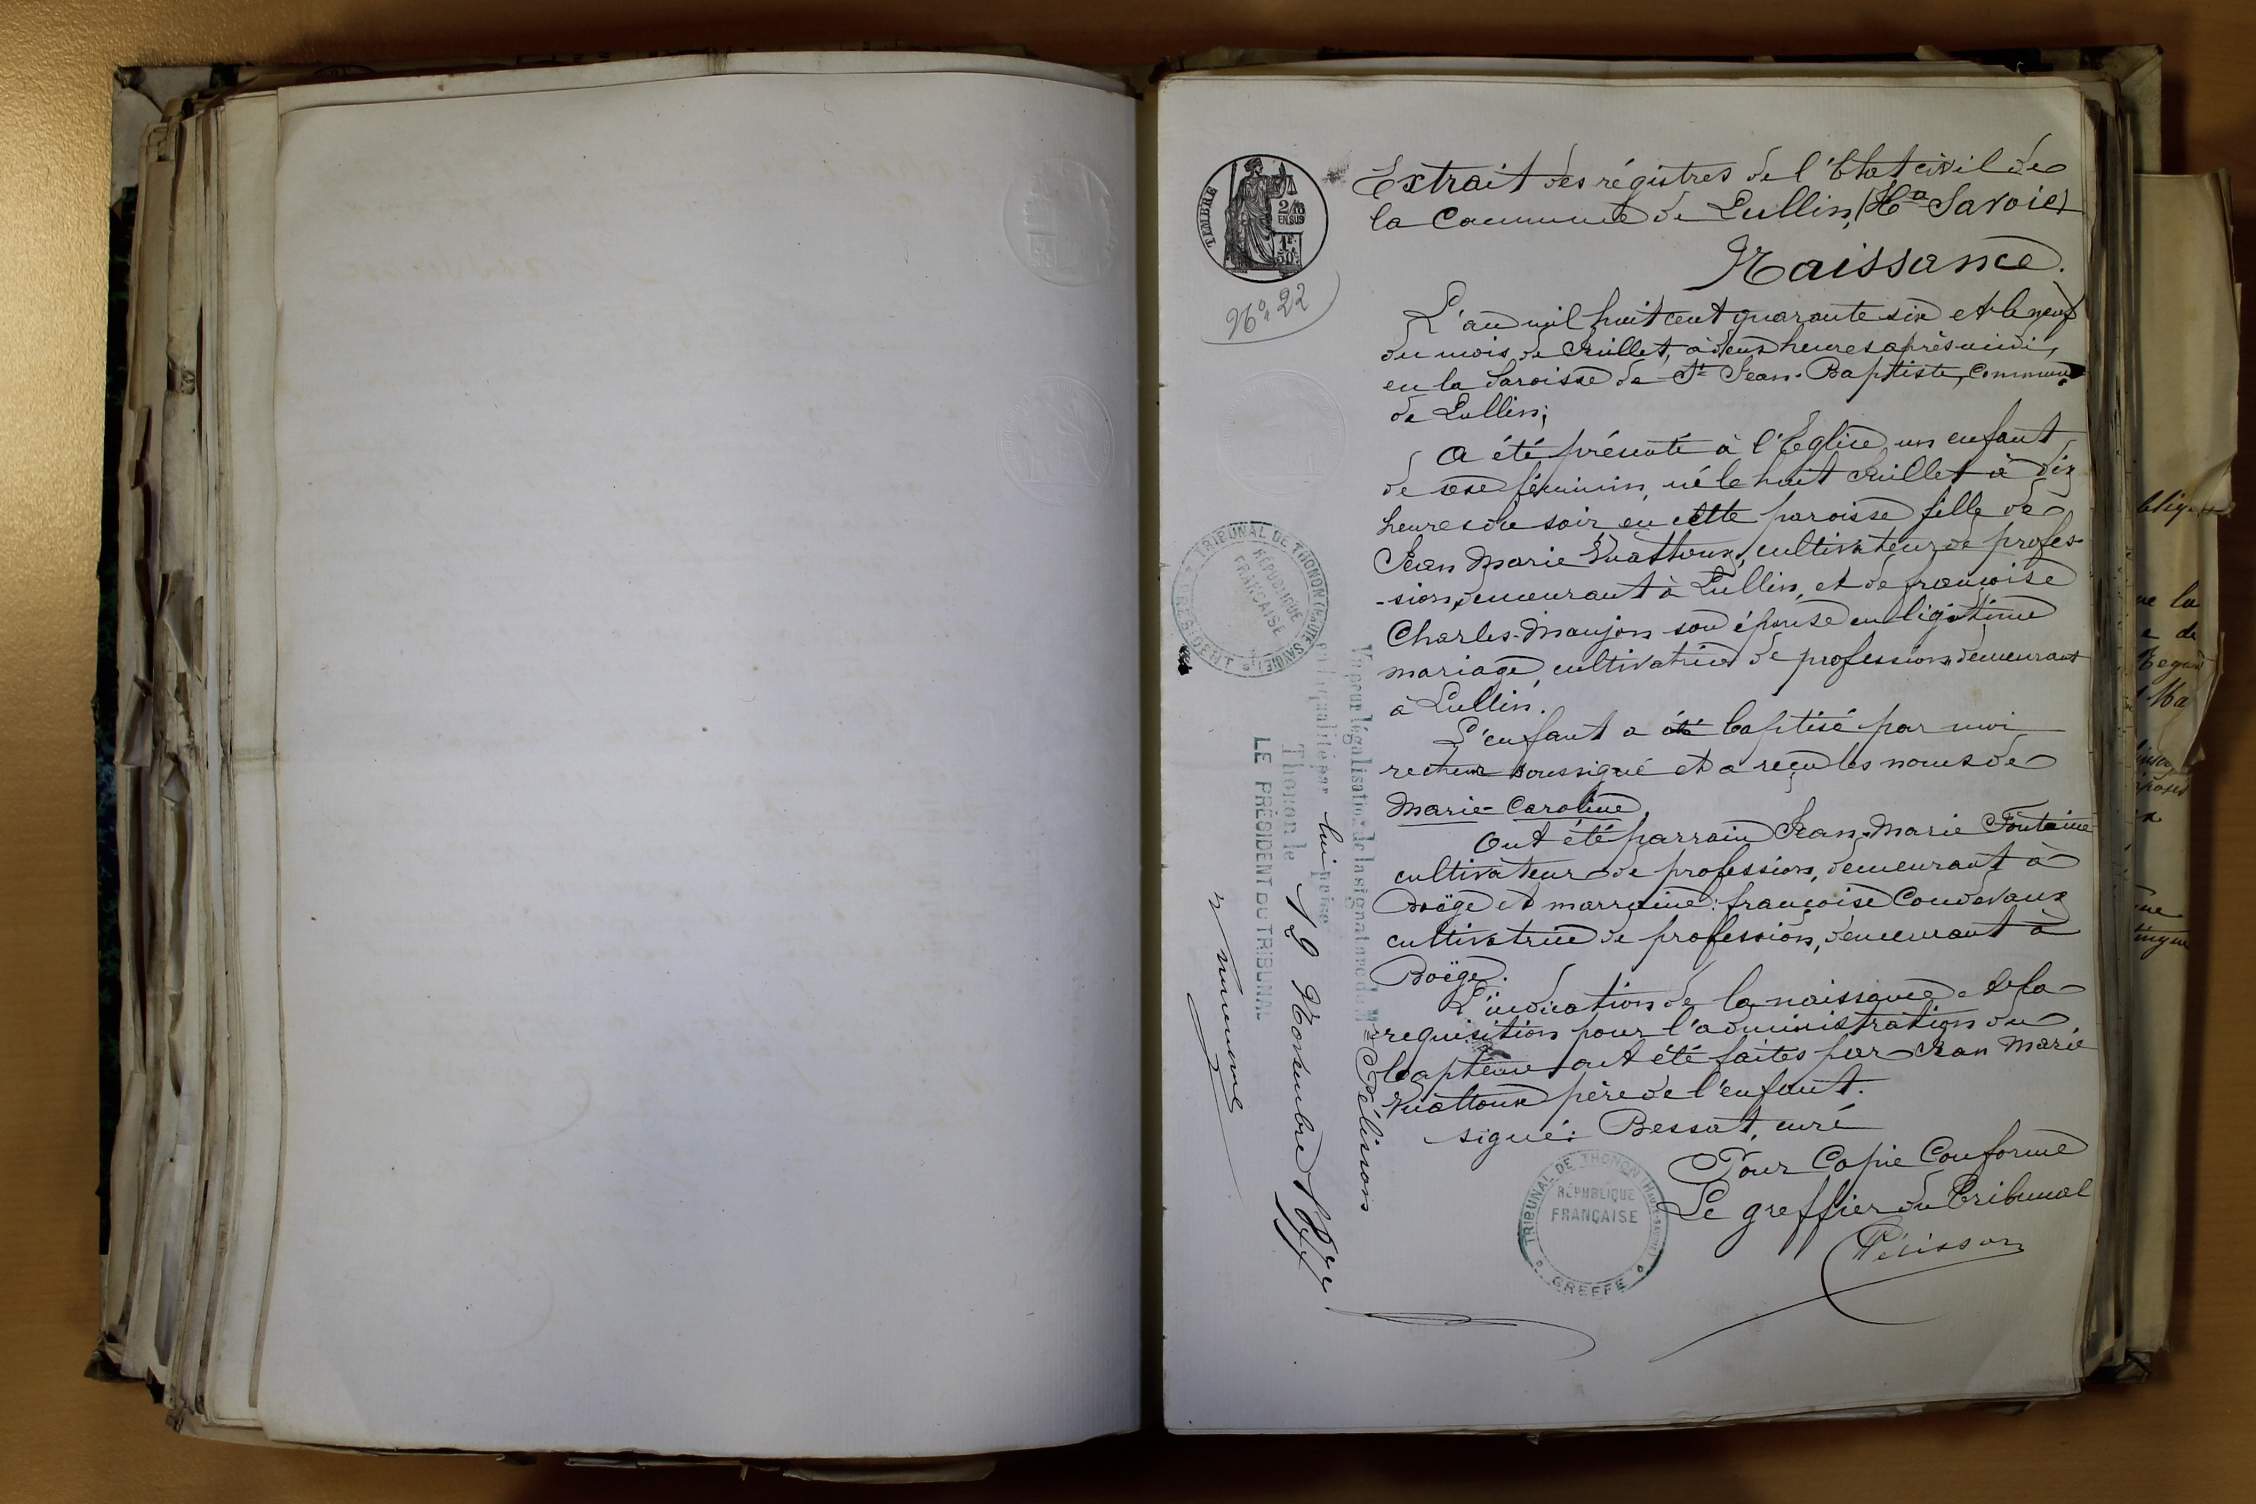 TIMBRE
2/10
EN SUS
1F.
50c
No. 22
Extrait des régistres de l'Etat civil de
la Commune de Lullin, (Hte Savoie)
Naissance.
L'an mil huit cent quarante six et le neuf
du mois de Juillet, à deux heures après midi,
en la Paroisse de St Jean-Baptiste, Commune
de Lullin;
A été présenté à l'Eglise un enfant
de sexe féminin, né le huit Juillet à dix
heures du soir, en cette paroisse fille de
Jean Marie Vuattoux, cultivateur de profes-
-sion, demeurant à Lullin, et de françoise
Charles-Maujon son épouse en légitime
mariage, cultivatrice de profession, demeurant
à Lullin.
L'enfant a été baptisé par moi
recteur soussigné et a reçu les noms de
Marie-Caroline.
Ont été parrain Jean-Marie Fontaine
cultivateur de profession, demeurant à
Boëge et marraine: françoise Condevaux
cultivatrice de profession, demeurant à
Boëge.
L'indication de la naissance et la
requisition pour l'administration du
baptême ont été faites par Jean Marie
Vuattoux père de l'enfant.
signé: Bessat, curé
Pour Copie Conforme
Le greffier du Tribunal
Pélisson
TRIBUNAL DE THONON (HAUTE-SAVOIE)
RÉPUBLIQUE
FRANÇAISE
GREFFE
TRIBUNAL DE THONON (HAUTE SAVOIE)
RÉPUBLIQUE
FRANÇAISE
PRÉSIDENT
Vu pour légalisation de la signature de Me Pélisson
Thonon le 12 Novembre
LE PRÉSIDENT DU TRIBUNAL